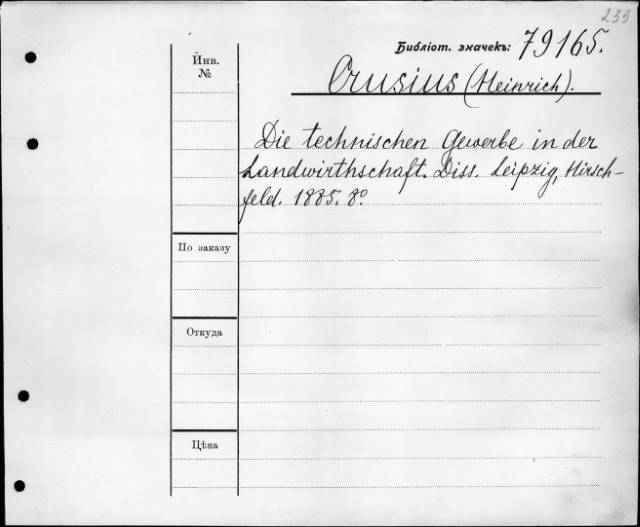 233
Библіот. значекъ: 79165.
Инв.
№
Crusius (Heinrich).
Die technischen Gewerbe in der
Landwirthschaft. Diss. Leipzig, Hirsch-
feld. 1885. 8°.
По заказу
Откуда
Цѣна